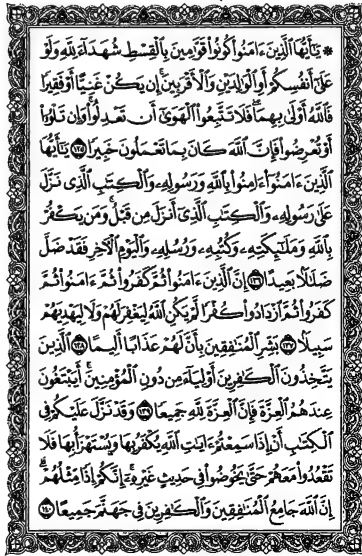 ۞ يَٰٓأَيُّهَا ٱلَّذِينَ ءَامَنُوا۟ كُونُوا۟ قَوَّٰمِينَ بِٱلْقِسْطِ شُهَدَآءَ لِلَّهِ وَلَوْ
عَلَىٰٓ أَنفُسِكُمْ أَوِ ٱلْوَٰلِدَيْنِ وَٱلْأَقْرَبِينَ ۚ إِن يَكُنْ غَنِيًّا أَوْ فَقِيرًا
فَٱللَّهُ أَوْلَىٰ بِهِمَا ۖ فَلَا تَتَّبِعُوا۟ ٱلْهَوَىٰٓ أَن تَعْدِلُوا۟ ۚ وَإِن تَلْوُۥٓا۟
أَوْ تُعْرِضُوا۟ فَإِنَّ ٱللَّهَ كَانَ بِمَا تَعْمَلُونَ خَبِيرًا ۝١٣٥ يَٰٓأَيُّهَا
ٱلَّذِينَ ءَامَنُوٓا۟ ءَامِنُوا۟ بِٱللَّهِ وَرَسُولِهِۦ وَٱلْكِتَٰبِ ٱلَّذِى نَزَّلَ
عَلَىٰ رَسُولِهِۦ وَٱلْكِتَٰبِ ٱلَّذِىٓ أَنزَلَ مِن قَبْلُ ۚ وَمَن يَكْفُرْ
بِٱللَّهِ وَمَلَٰٓئِكَتِهِۦ وَكُتُبِهِۦ وَرُسُلِهِۦ وَٱلْيَوْمِ ٱلْءَاخِرِ فَقَدْ ضَلَّ
ضَلَٰلًۢا بَعِيدًا ۝١٣٦ إِنَّ ٱلَّذِينَ ءَامَنُوا۟ ثُمَّ كَفَرُوا۟ ثُمَّ ءَامَنُوا۟ ثُمَّ
كَفَرُوا۟ ثُمَّ ٱزْدَادُوا۟ كُفْرًا لَّمْ يَكُنِ ٱللَّهُ لِيَغْفِرَ لَهُمْ وَلَا لِيَهْدِيَهُمْ
سَبِيلًۢا ۝١٣٧ بَشِّرِ ٱلْمُنَٰفِقِينَ بِأَنَّ لَهُمْ عَذَابًا أَلِيمًا ۝١٣٨ ٱلَّذِينَ
يَتَّخِذُونَ ٱلْكَٰفِرِينَ أَوْلِيَآءَ مِن دُونِ ٱلْمُؤْمِنِينَ ۚ أَيَبْتَغُونَ
عِندَهُمُ ٱلْعِزَّةَ فَإِنَّ ٱلْعِزَّةَ لِلَّهِ جَمِيعًا ۝١٣٩ وَقَدْ نَزَّلَ عَلَيْكُمْ فِى
ٱلْكِتَٰبِ أَنْ إِذَا سَمِعْتُمْ ءَايَٰتِ ٱللَّهِ يُكْفَرُ بِهَا وَيُسْتَهْزَأُ بِهَا فَلَا
تَقْعُدُوا۟ مَعَهُمْ حَتَّىٰ يَخُوضُوا۟ فِى حَدِيثٍ غَيْرِهِۦٓ ۚ إِنَّكُمْ إِذًا مِّثْلُهُمْ ۗ
إِنَّ ٱللَّهَ جَامِعُ ٱلْمُنَٰفِقِينَ وَٱلْكَٰفِرِينَ فِى جَهَنَّمَ جَمِيعًا ۝١٤٠